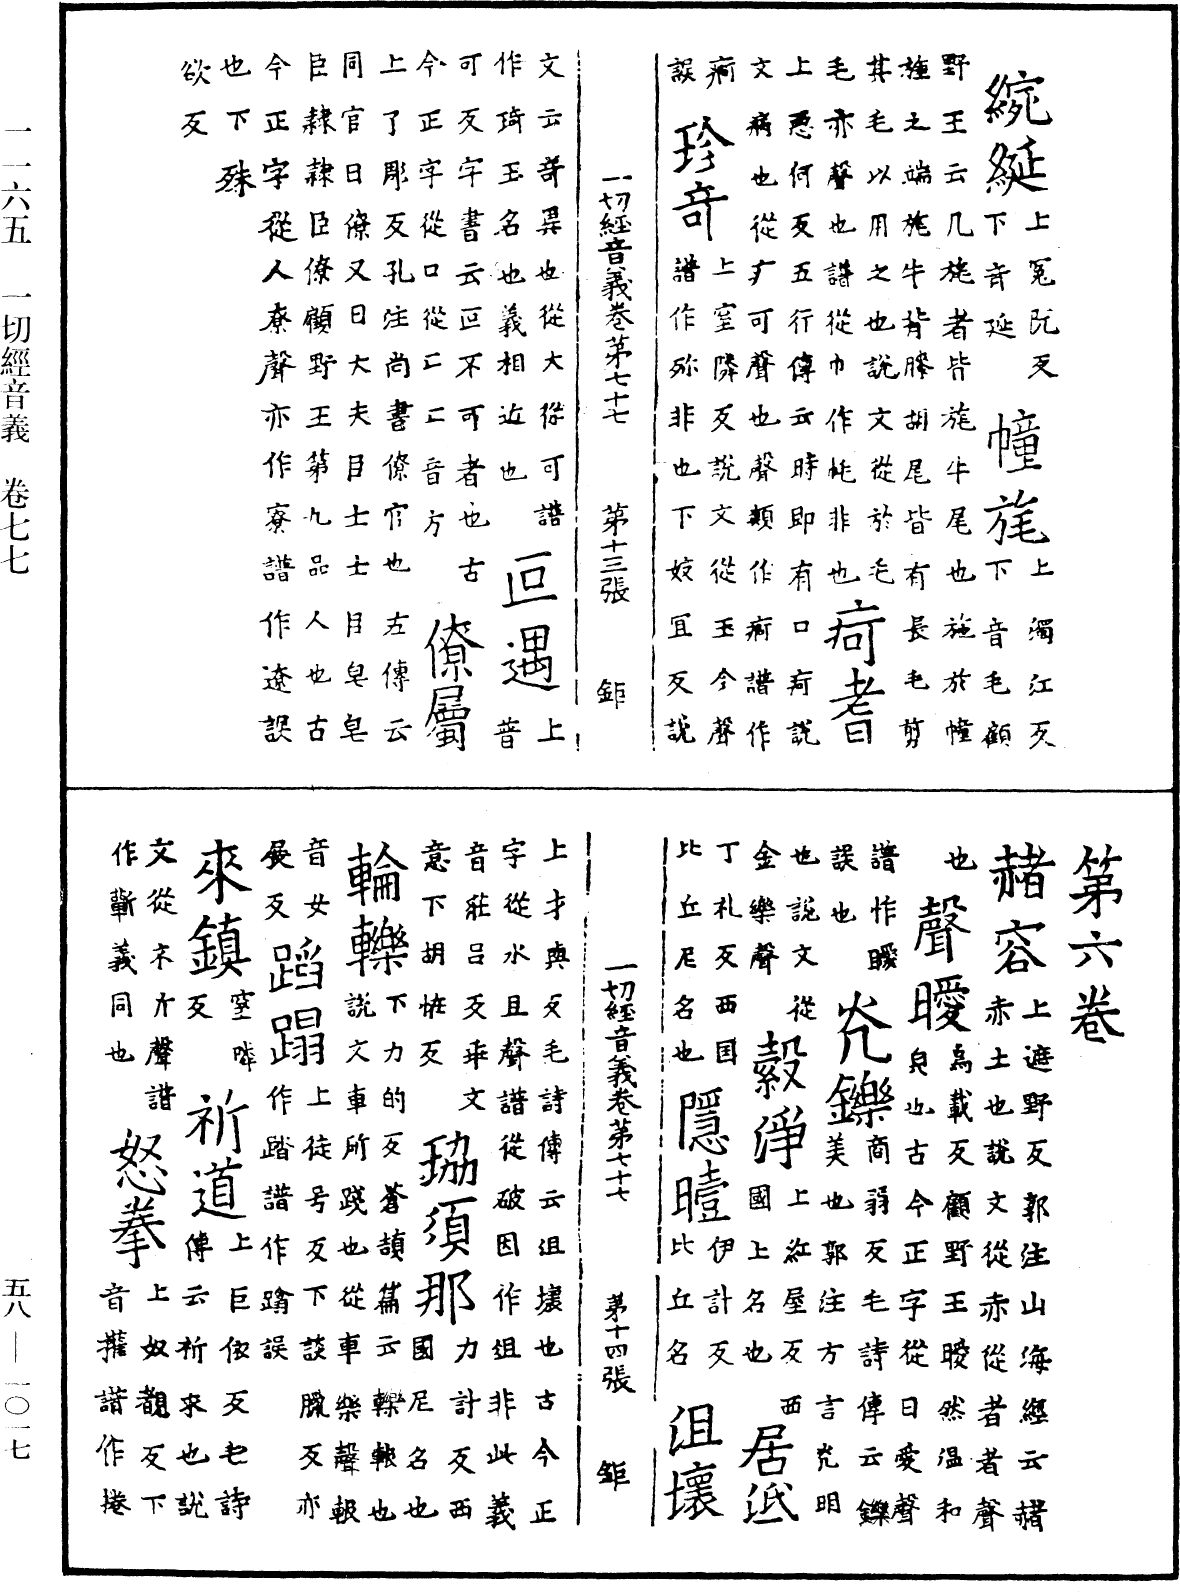 綩綖上冤阮反下音延幢旄上濁江反下音毛顧
野王云凡旄者皆旄牛尾也旄於幢
旌之端旄牛背膝胡尾皆有長毛剪
其毛以用之也說文從㫃毛
毛亦聲也譜從巾作㲠非也疴耆
上惡何反五行傳云時即有口疴說
文病也從疒可聲也聲類作痾譜作
痾誤珍奇上窒隣反說文從玉㐱聲
譜作珎非也下妓冝反說
一切經音義卷第七十七 第十三張 鉅
文云竒異也從大從可譜
作琦玉名也義相近也叵遇上普
可反字書云叵不可者也古
今正字從口從匚匚音方僚屬
上了彫反孔注尚書僚官也左傳云
同官曰僚又曰大夫目士士目皂皂
臣隸隸臣僚顧野王第九品人也古
今正字從人尞聲亦作寮譜作遼誤
也下殊
欲反
第六卷
赭容上遮野反郭注山海經云赭
赤土也說文從赤從者者聲
也聲曖烏載反顧野王曖然温和
皃也古今正字從日愛聲
譜作曖 灮鑠商弱反毛詩傳云鑠
美也郭注方言光明
誤也
也說文從
金樂聲縠淨上紅屋反西
國上名也居泜
丁礼反西国伊計反
比丘尼名也隱曀比丘名沮壞
一切經音義卷第七十七 第十四張 鉅
上才與反毛詩傳云沮壞也古今正
字從水且聲譜從破因作俎非此義
音莊呂反乖文
意下胡恠反珕須那力計反西
國尼名也
輪轢下力的反蒼頡篇云轢報也
說文車所踐也從車樂聲報
音女
展反蹈蹋上徒号反下談臘反亦
作踏譜作蹹誤
來鎮窒隣
反祈道上巨依反毛詩
傳云祈求也說
文從示斤聲譜
作蘄義同也怒拳上奴覩反下
音權譜作捲
一一六五 一切經音義 卷七七
五八—一〇一七